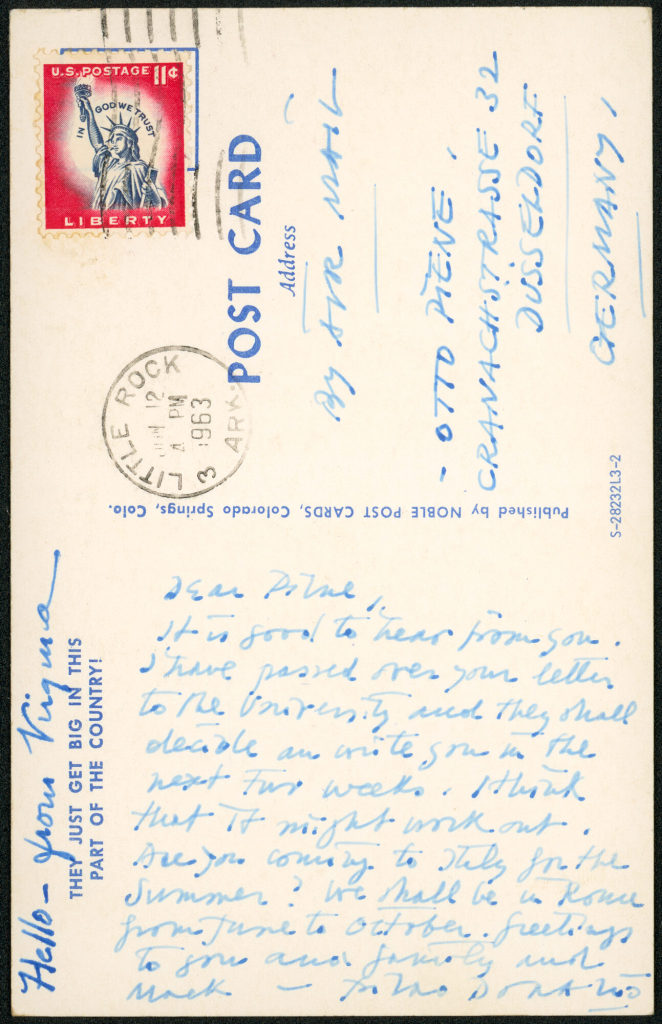 U.S. POSTAGE 11¢
IN GOD WE TRUST
LIBERTY
POST CARD
Address
LITTLE ROCK
12
PM
1963
ARK.
3
BY AIR MAIL
- OTTO PIENE,
CRANACHSTRASSE 32
DUSSELDORF
GERMANY,
Published by NOBLE POST CARDS, Colorado Springs, Colo.
S-28232L3-2
Hello - from Virginia
THEY JUST GET BIG IN THIS
PART OF THE COUNTRY!
Dear Piene,
It is good to hear from you.
I have passed over your letter
to the University and they shall
decide an write you in the
next few weeks. I think
that it might work out.
Are you coming to Italy for the
Summer? We shall be in Rome
from June to October. Greetings
to you and family and
Mack —